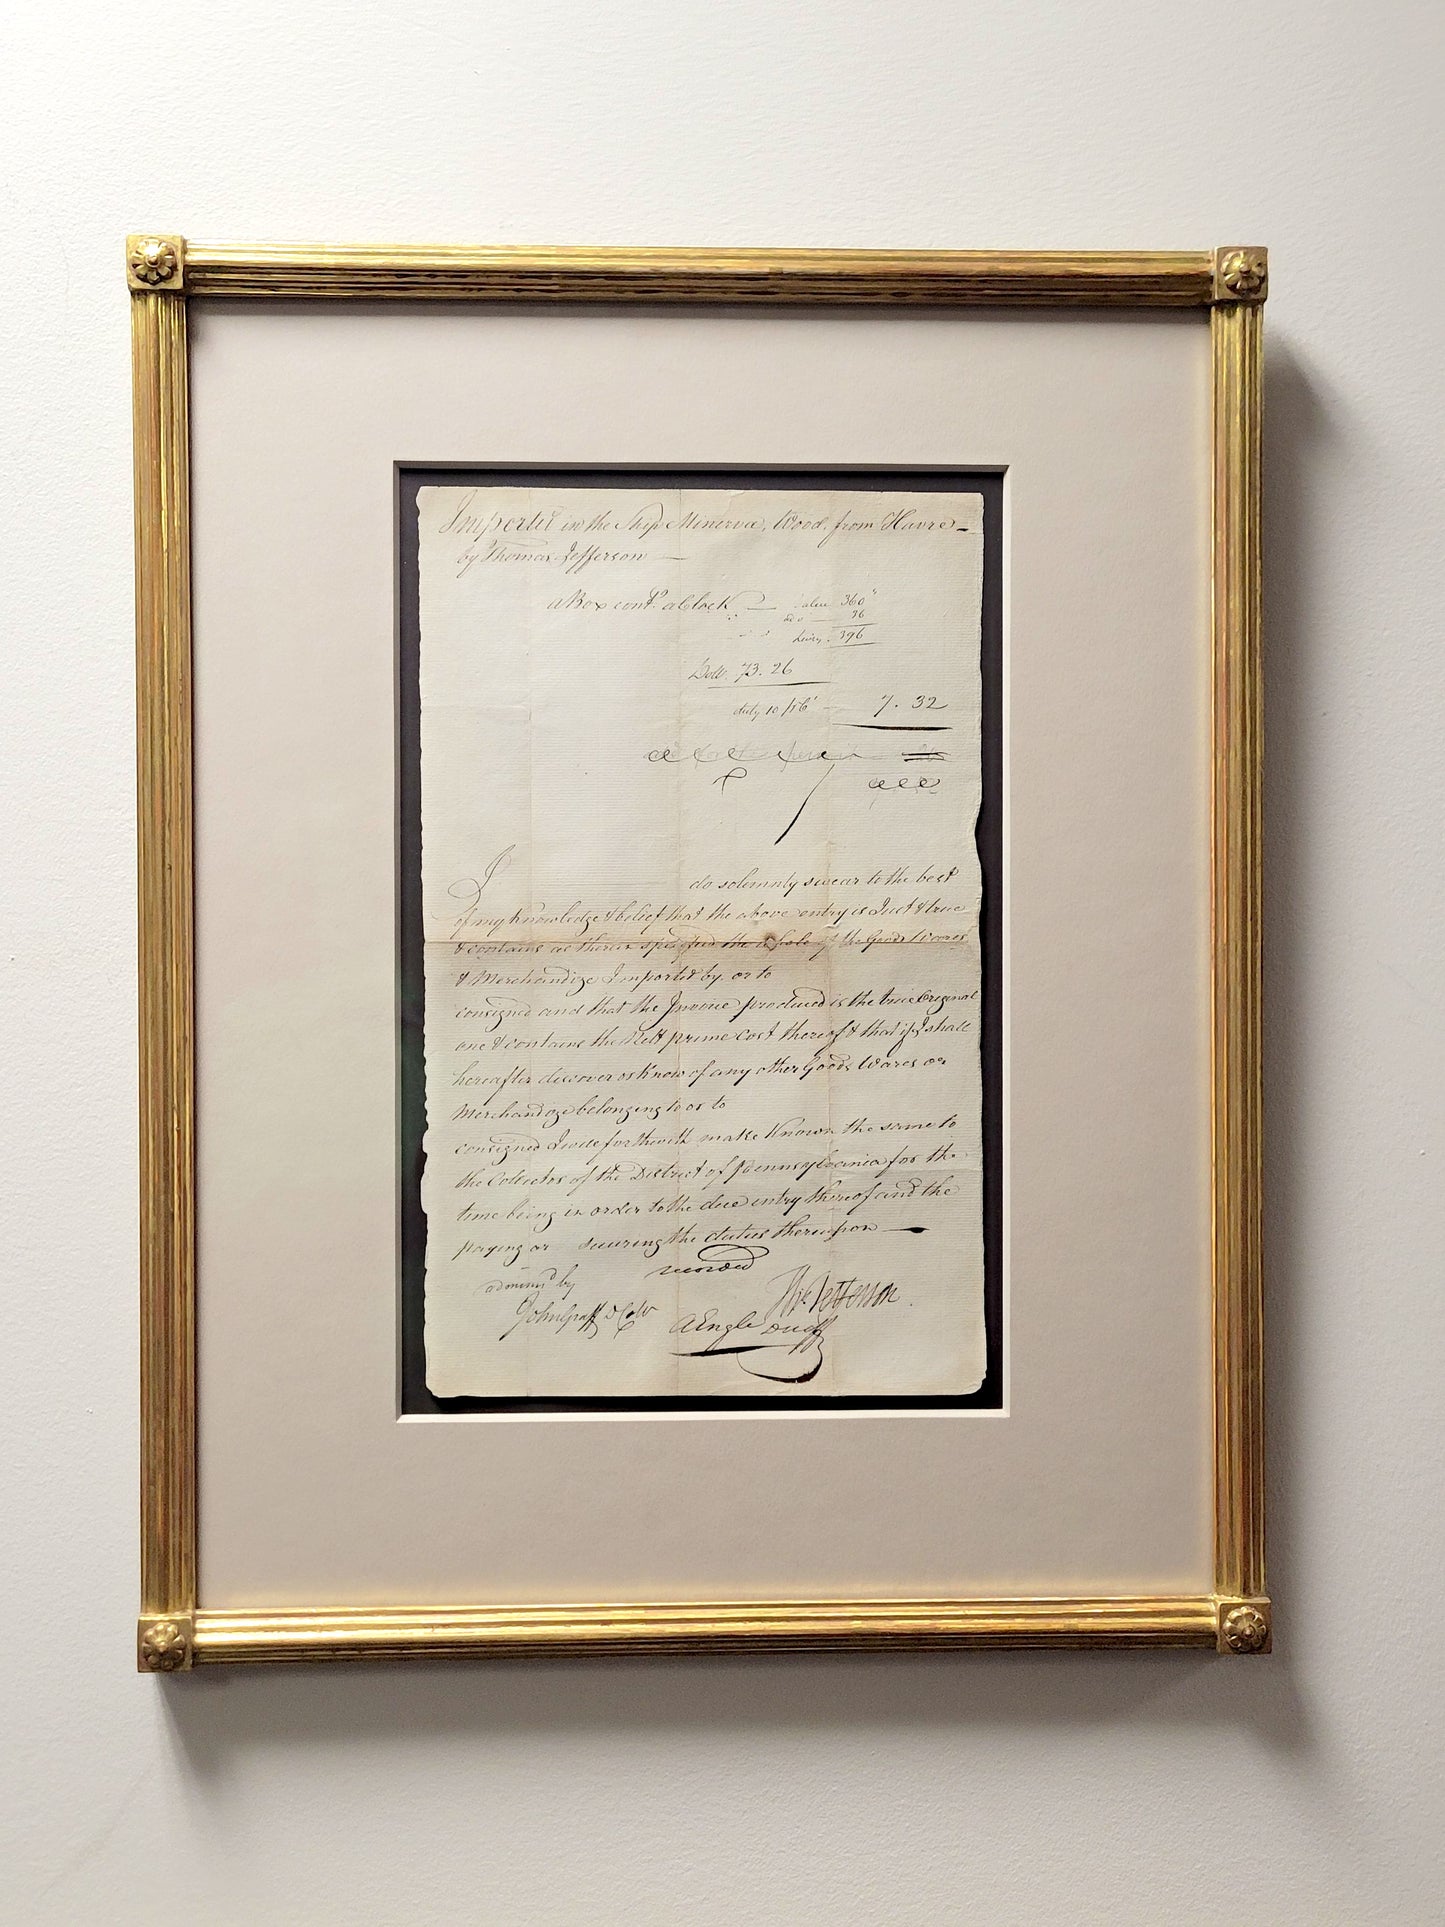 Imported in the Ship Minerva, Wood, from Havre
by Thomas Jefferson
a Box cont.g a Clock Value 360
36
Livres 396
Doll. 73.26
duty 10 7.32
I do solemnly swear to the best
of my Knowledge & belief that the above entry is Just & true
& contains as therein specified the whole of the Goods Wares
& Merchandize Imported by or to
consigned and that the Invoice produced is the true Original
one & contains the Nett prime Cost thereof & that if I shall
hereafter discover or Know of any other Goods Wares or
Merchandize belonging to or to
consigned I will forthwith make Known the same to
the Collector of the District of Pennsylvania for the
time being in order to the due entry thereof and the
paying or securing the duties thereupon
admin.d by
Th: Jefferson
John Graff D Col.r
A Engle